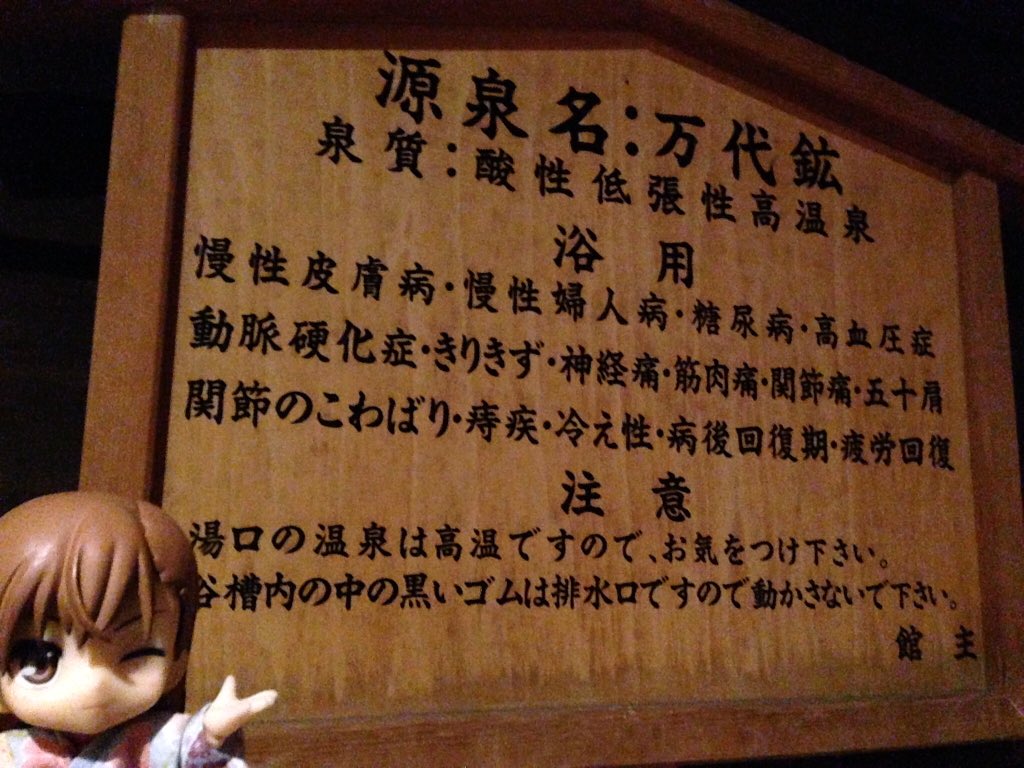 源泉名:万代鉱
泉質:酸性低張性高温泉
浴用
慢性皮膚病・慢性婦人病・糖尿病・高血圧症
動脈硬化症・きりきず・神経痛・筋肉痛・関節痛・五十肩
関節のこわばり・痔疾・冷え性・病後回復期・疲労回復
注意
湯口の温泉は高温ですので、お気をつけ下さい。
浴槽内の中の黒いゴムは排水口ですので動かさないで下さい。
館主